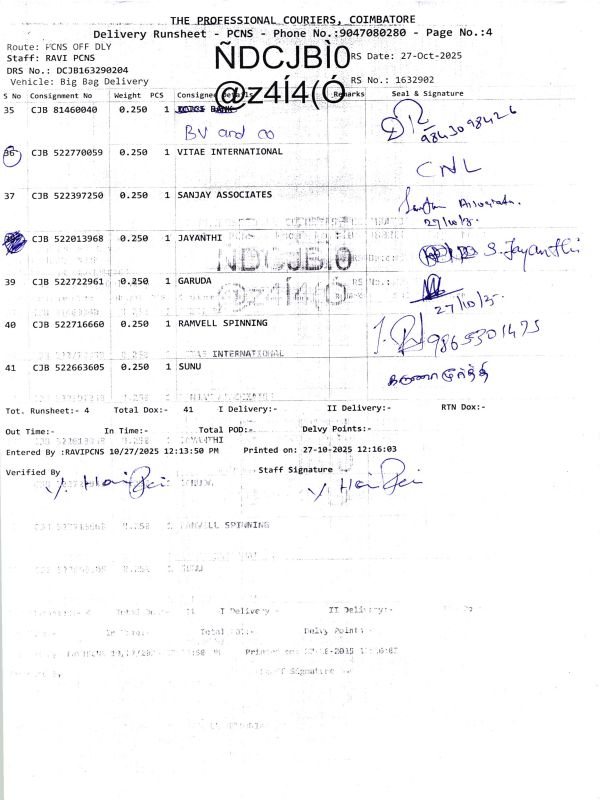 THE PROFESSIONAL COURIERS, COIMBATORE
Delivery Runsheet - PCNS - Phone No.:9047080280 - Page No.:4
Route: PCNS OFF DLY
ÑDCJBÌ0
Staff: RAVI PCNS RS Date: 27-Oct-2025
DRS No.: DCJB163290204
@z4Í4(Ó
Vehicle: Big Bag Delivery RS No.: 1632902
S No Consignment No Weight PCS Consignee Details Remarks Seal & Signature
35 CJB 81460040 0.250 1
BV and co
9843098426
36 CJB 522770059 0.250 1 VITAE INTERNATIONAL
CNL
37 CJB 522397250 0.250 1 SANJAY ASSOCIATES
27/10/25.
38 CJB 522013968 0.250 1 JAYANTHI S. Jayanthi
ÑDCJBÌ0
39 CJB 522722961 0.250 1 GARUDA
@z4Í4(Ó
27/10/25.
40 CJB 522716660 0.250 1 RAMVELL SPINNING
9865301475
INTERNATIONAL
41 CJB 522663605 0.250 1 SUNU
Tot. Runsheet:- 4 Total Dox:- 41 I Delivery:- II Delivery:- RTN Dox:-
Out Time:- In Time:- Total POD:- Delvy Points:-
Entered By :RAVIPCNS 10/27/2025 12:13:50 PM Printed on: 27-10-2025 12:16:03
Verified By Staff Signature
RAMVELL SPINNING